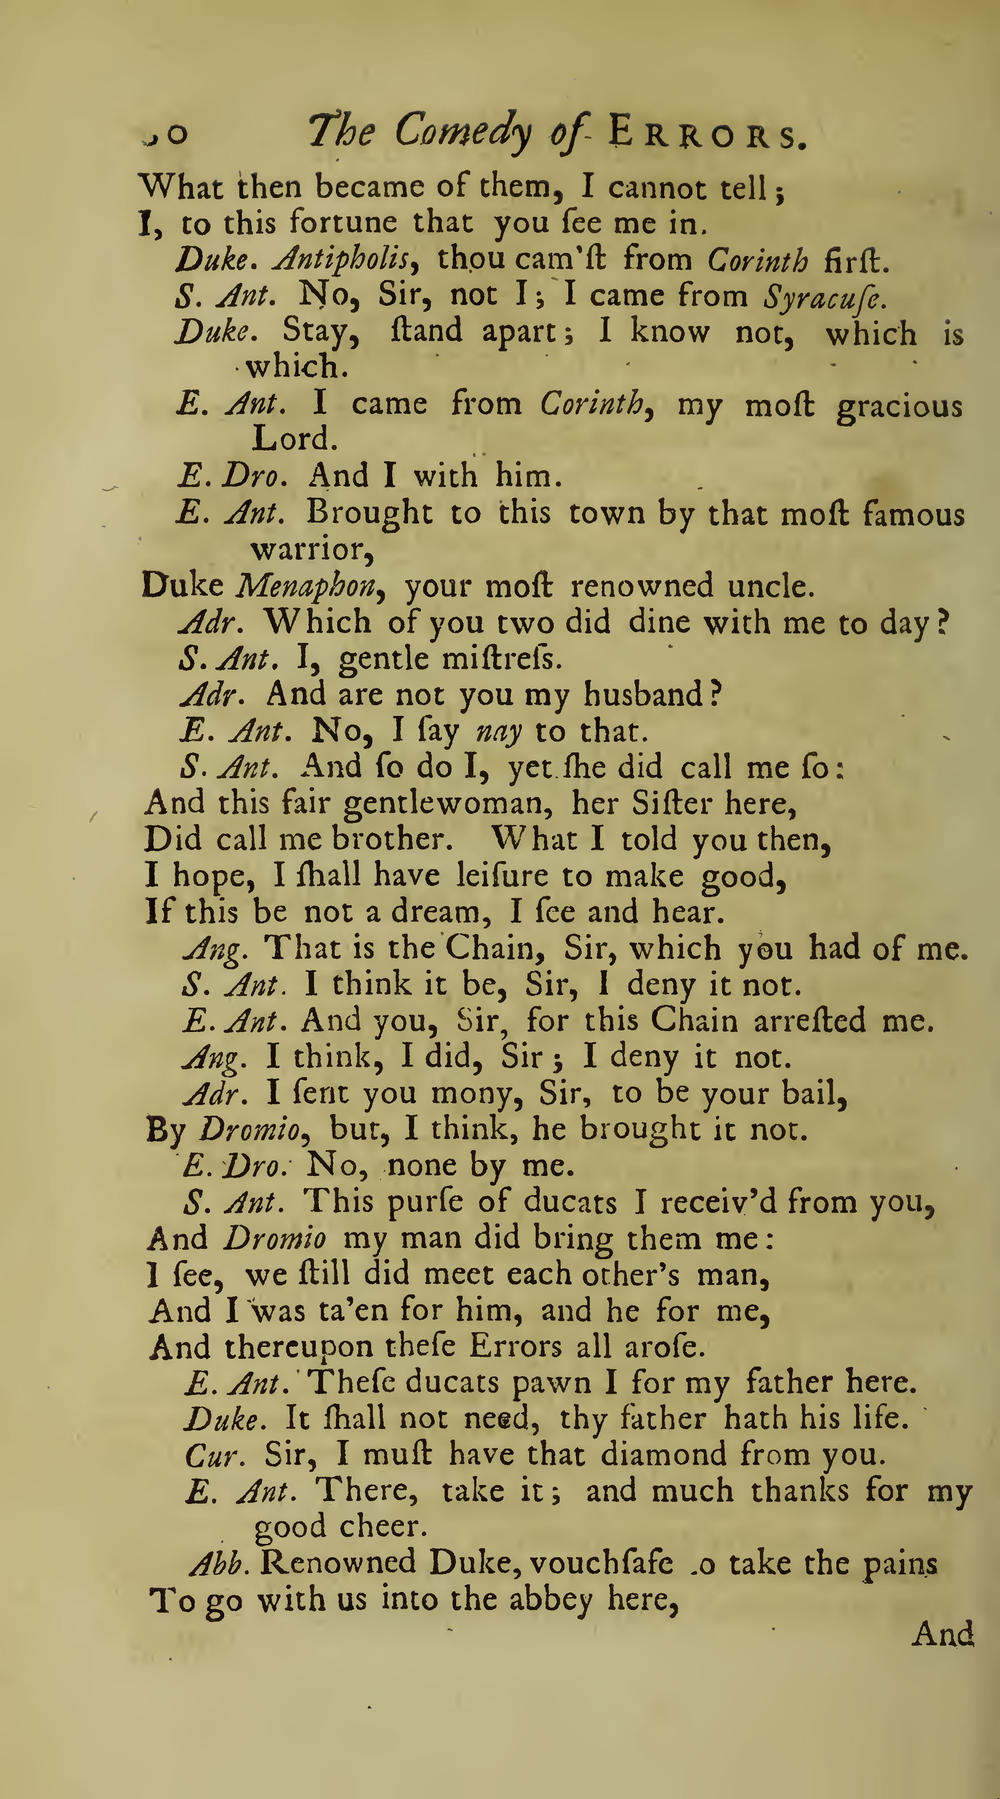 The Comedy of ERRORS.
What then became of them, I cannot tell;
I, to this fortune that you ſee me in.
Duke. Antipholis, thou cam'ſt from Corinth firſt.
S. Ant. No, Sir, not I; I came from Syracuſe.
Duke. Stay, ſtand apart; I know not, which is
which.
E. Ant. I came from Corinth, my moſt gracious
Lord.
E. Dro. And I with him.
E. Ant. Brought to this town by that moſt famous
warrior,
Duke Menaphon, your moſt renowned uncle.
Adr. Which of you two did dine with me to day?
S. Ant. I, gentle miſtreſs.
Adr. And are not you my husband?
E. Ant. No, I ſay nay to that.
S. Ant. And ſo do I, yet ſhe did call me ſo:
And this fair gentlewoman, her Siſter here,
Did call me brother. What I told you then,
I hope, I ſhall have leiſure to make good,
If this be not a dream, I ſee and hear.
Ang. That is the Chain, Sir, which you had of me.
S. Ant. I think it be, Sir, I deny it not.
E. Ant. And you, Sir, for this Chain arreſted me.
Ang. I think, I did, Sir; I deny it not.
Adr. I ſent you mony, Sir, to be your bail,
By Dromio, but, I think, he brought it not.
E. Dro. No, none by me.
S. Ant. This purſe of ducats I receiv'd from you,
And Dromio my man did bring them me:
I ſee, we ſtill did meet each other's man,
And I was ta'en for him, and he for me,
And thereupon theſe Errors all aroſe.
E. Ant. Theſe ducats pawn I for my father here.
Duke. It ſhall not need, thy father hath his life.
Cur. Sir, I muſt have that diamond from you.
E. Ant. There, take it; and much thanks for my
good cheer.
Abb. Renowned Duke, vouchſafe to take the pains
To go with us into the abbey here,
And